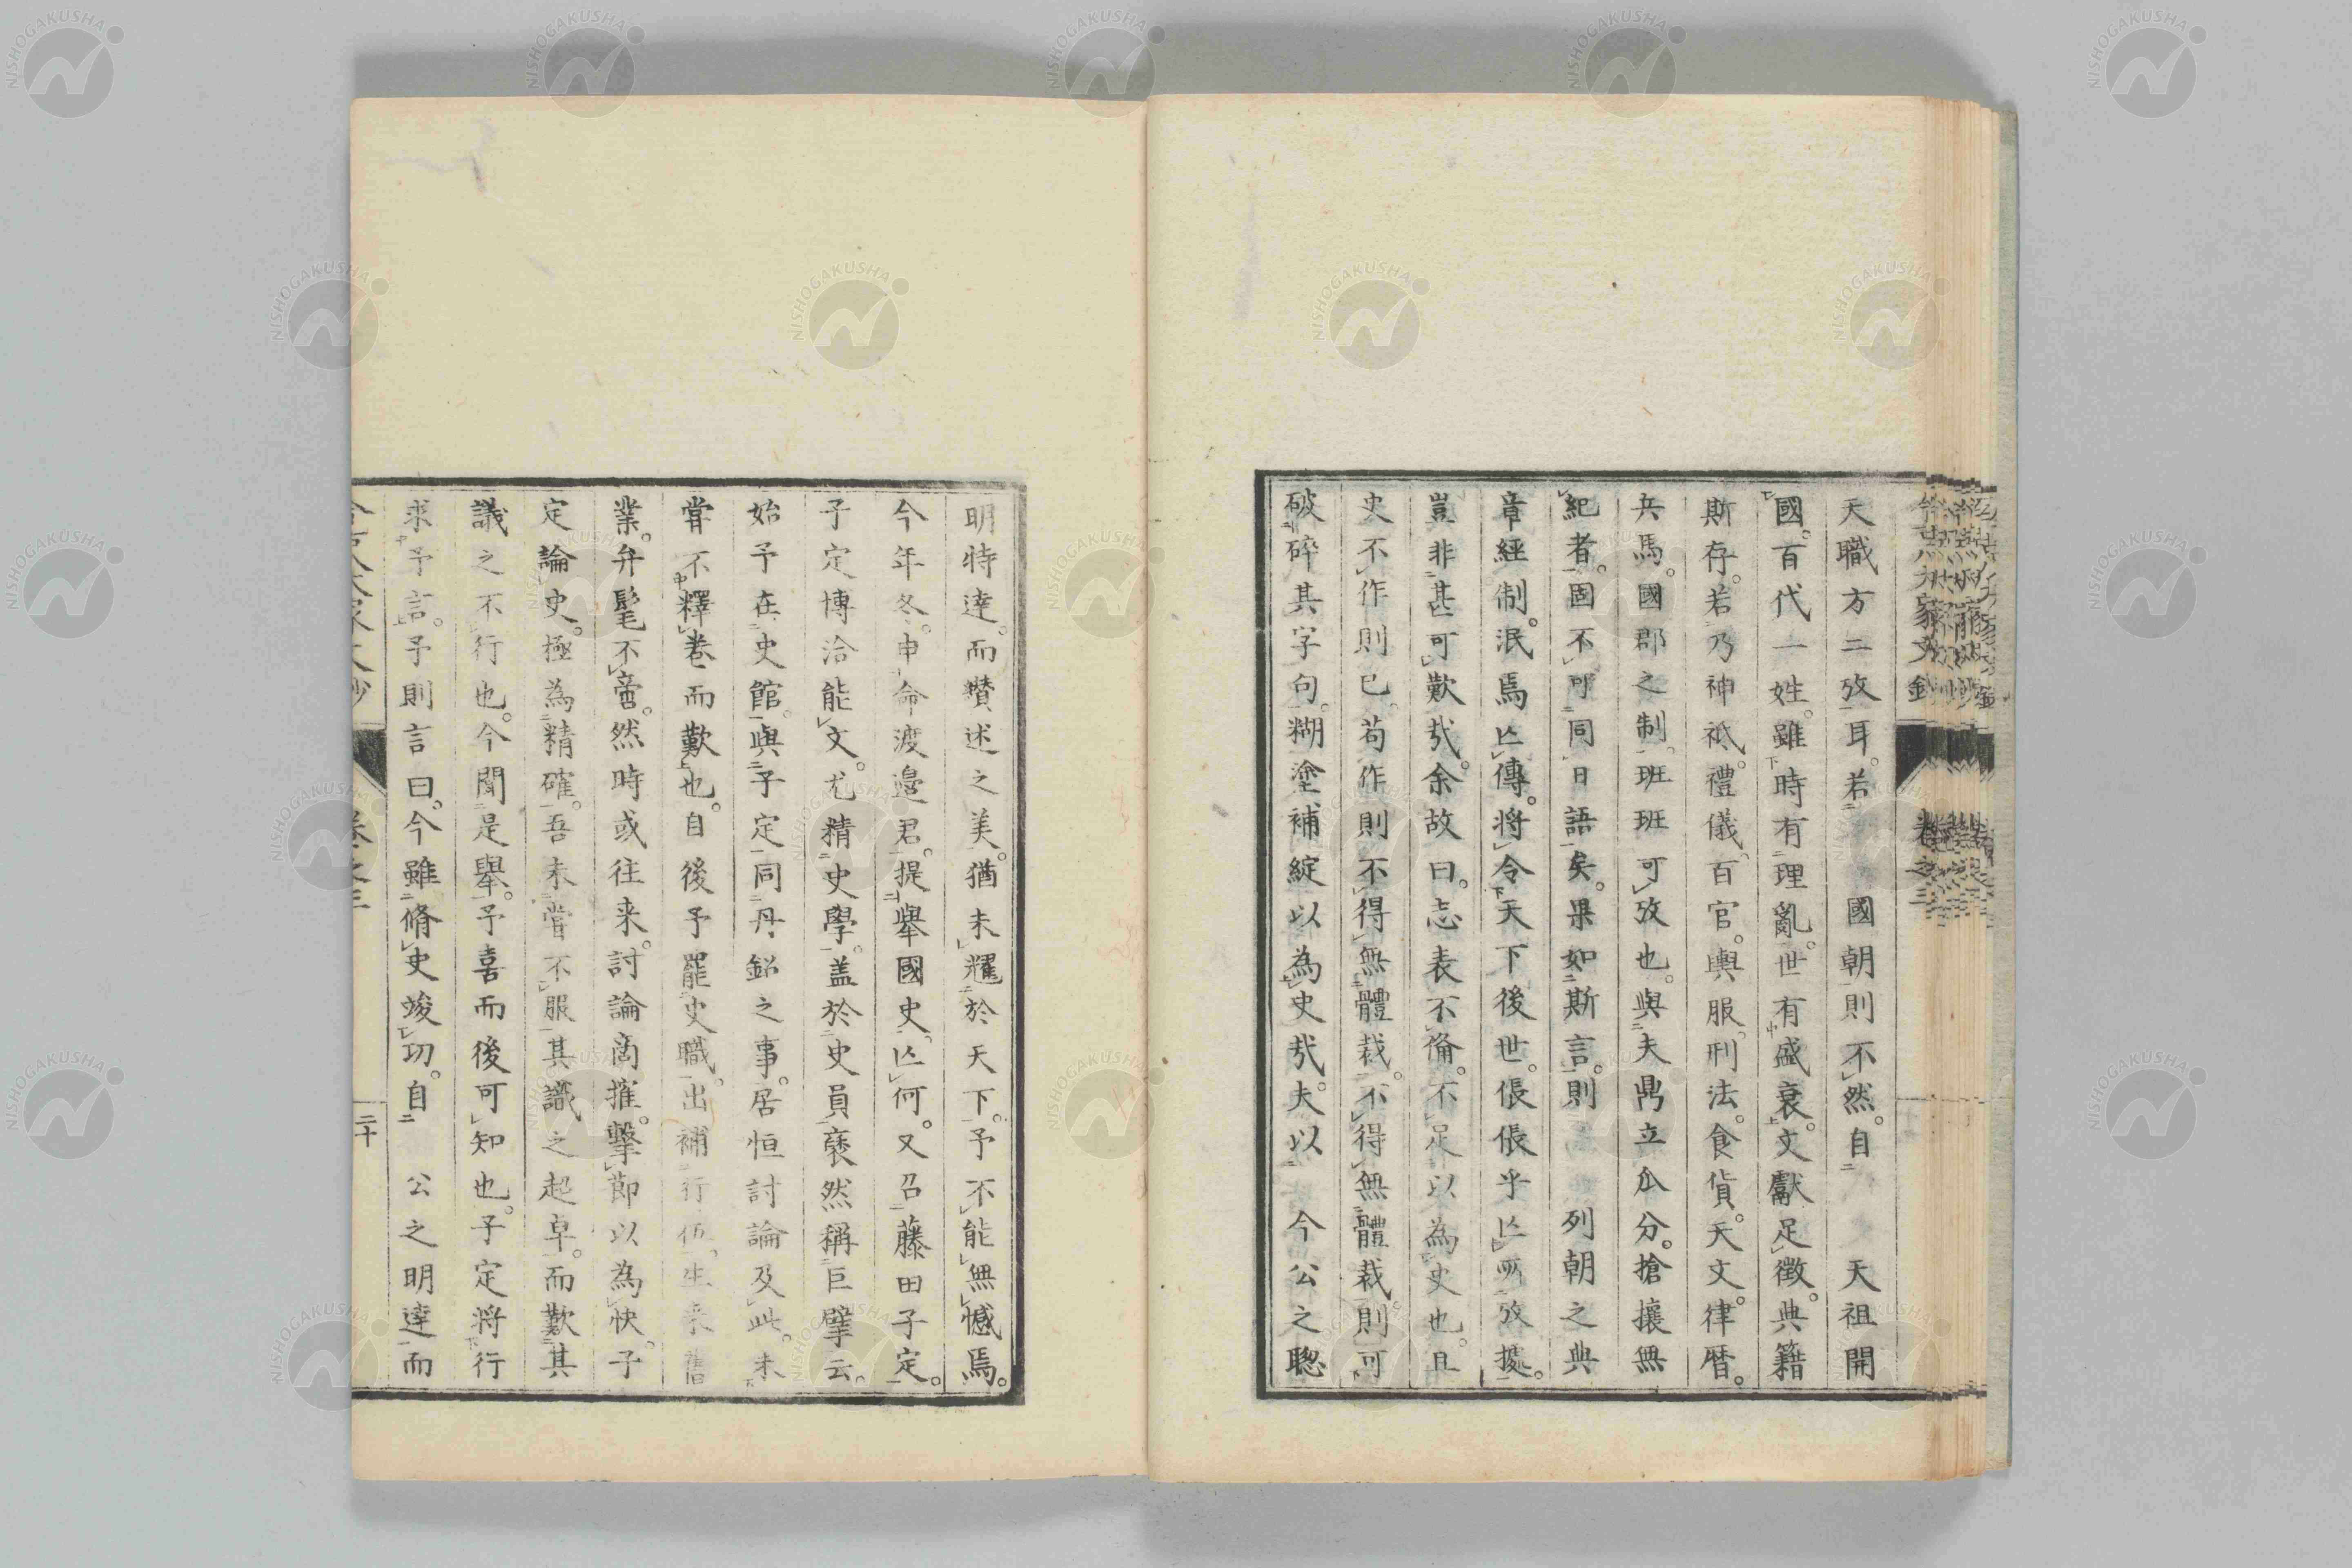 天職方二攷耳。若 國朝則不然。自 天祖開
國。百代一姓。雖時有理亂。世有盛衰。文獻足徵。典籍
斯存。若乃神祇。禮儀。百官。輿服。刑法。食貨。天文。律暦。
兵馬。國郡之制。班班可攷也。與夫鼎立瓜分。搶攘無
紀者。固不可同日語矣。果如斯言。則 列朝之典
章經制。泯焉亡傳。将令天下後世。倀倀乎亡所攷據。
豈非甚可歎哉。余故曰。志表不備。不足以為史也。且
史不作則已。苟作則不得無體裁。不得無體裁。則可
破碎其字句。糊塗補綻以為史哉。夫以 今公之聡
明特達。而纉述之美。猶未耀於天下。予不能無憾焉。
今年冬。申命渡邉君。提舉國史。亡何。又召藤田子定。
子定博洽能文。尤精史學。盖於史員褎然稱巨擘云。
始予在史館。與子定同丹鉛之事。居恒討論及此。未
甞不釋巻而歎也。自後予罷史職。出補行伍。生来舊
業。弁髦不啻。然時或往来。討論啇搉。擊節以為快。子
定論史。極為精確。吾未甞不服其識之起卓。而歎其
議之不行也。今聞是舉。予喜而後可知也。子定将行
求予言。予則言曰。今雖脩史竣功。自 公之明達而
今古八大家文鈔 巻之三
巻之三 二十
NISHOGAKUSHA